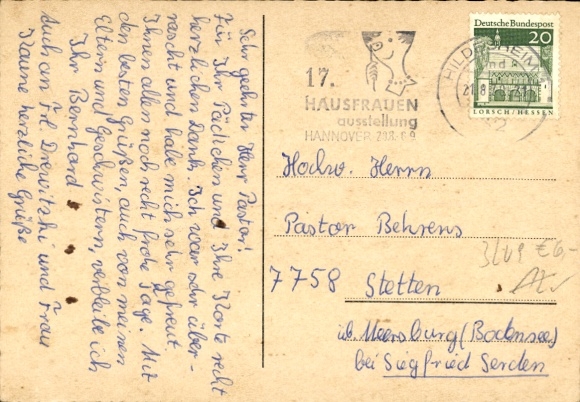 Sehr geehrter Herr Pastor!
Für Ihr Päckchen und Ihre Karte recht
herzlichen Dank. Ich war sehr über-
rascht und habe mich sehr gefreut.
Ihnen allen noch recht frohe Tage. Mit
den besten Grüßen, auch von meinen
Eltern und Geschwistern, verbleibe ich
Ihr Bernhard
Auch an Frl. Drewitzki und Frau
Kaune herzliche Grüße
17.
HAUSFRAUEN
ausstellung
HANNOVER 29.8.-8.9.
HILDESHEIM
21.8.
Deutsche Bundespost
20
LORSCH/HESSEN
Hochw. Herrn
Pastor Behrens
7758 Stetten
üb. Meersburg (Bodensee)
bei Siegfried Serden